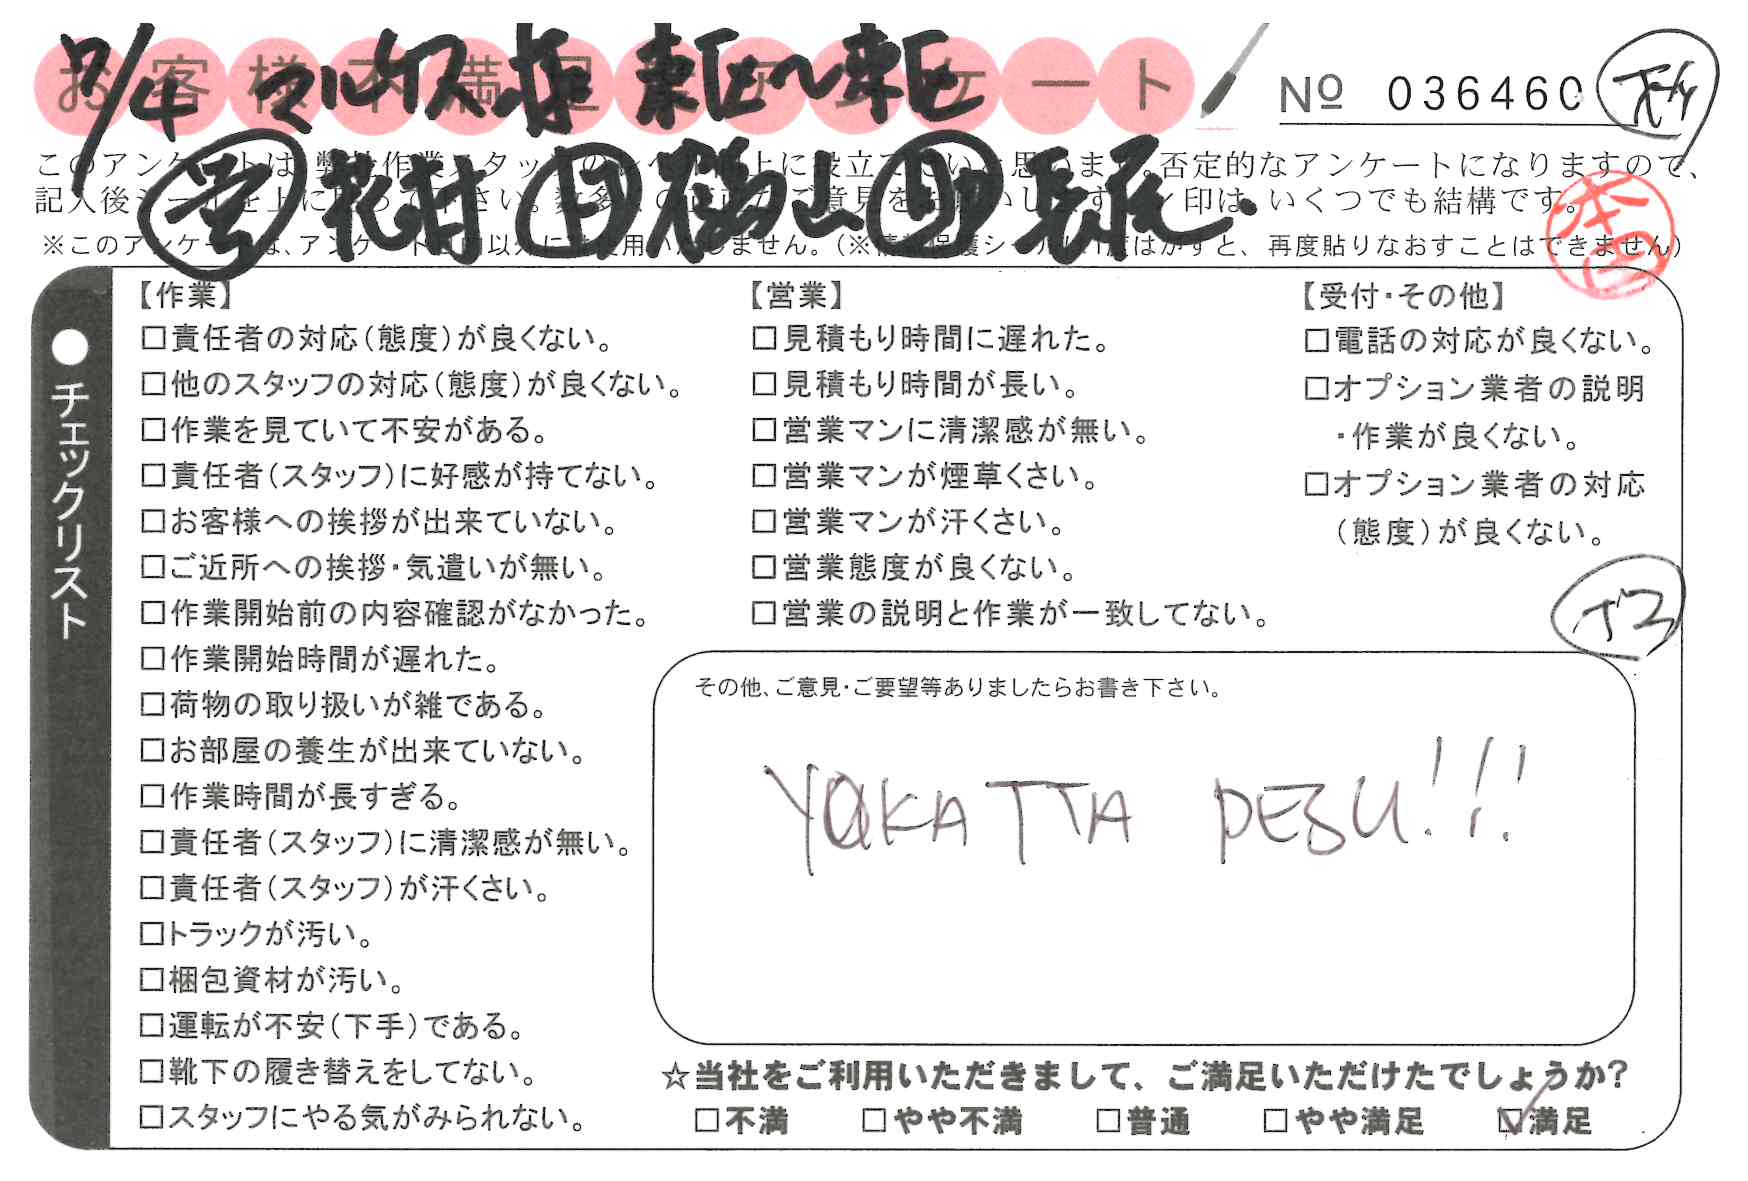 7/4 マルケス様 東区〜東区
お客様不満足度アンケート
№ 036460
営 花村 作 福山 助 長尾
このアンケートは、弊社作業スタッフのレベル向上に役立てたいと思います。否定的なアンケートになりますので、
記入後シールを上に貼って下さい。数多くのご意見をお願いします。レ印は、いくつでも結構です。
※このアンケートは、アンケート目的以外には使用いたしません。(※情報保護シールは1度はがすと、再度貼りなおすことはできません)
本
●チェックリスト
【作業】
□責任者の対応(態度)が良くない。
□他のスタッフの対応(態度)が良くない。
□作業を見ていて不安がある。
□責任者(スタッフ)に好感が持てない。
□お客様への挨拶が出来ていない。
□ご近所への挨拶・気遣いが無い。
□作業開始前の内容確認がなかった。
□作業開始時間が遅れた。
□荷物の取り扱いが雑である。
□お部屋の養生が出来ていない。
□作業時間が長すぎる。
□責任者(スタッフ)に清潔感が無い。
□責任者(スタッフ)が汗くさい。
□トラックが汚い。
□梱包資材が汚い。
□運転が不安(下手)である。
□靴下の履き替えをしてない。
□スタッフにやる気がみられない。
【営業】
□見積もり時間に遅れた。
□見積もり時間が長い。
□営業マンに清潔感が無い。
□営業マンが煙草くさい。
□営業マンが汗くさい。
□営業態度が良くない。
□営業の説明と作業が一致してない。
【受付・その他】
□電話の対応が良くない。
□オプション業者の説明
・作業が良くない。
□オプション業者の対応
(態度)が良くない。
その他、ご意見・ご要望等ありましたらお書き下さい。
YOKATTA DESU!!!
☆当社をご利用いただきまして、ご満足いただけたでしょうか?
□不満 □やや不満 □普通 □やや満足 ☑満足